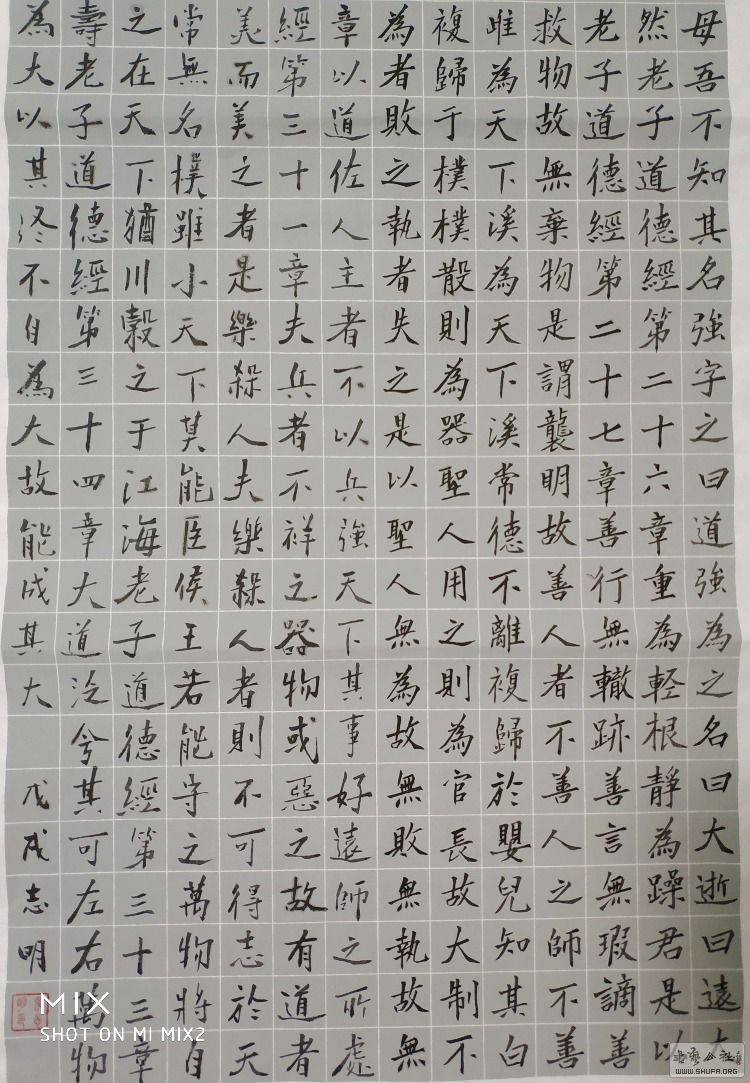 母吾不知其名強字之曰道強為之名曰大逝曰遠大
然老子道德經第二十六章重為輕根靜為躁君是以
老子道德經第二十七章善行無轍跡善言無瑕謫善
救物故無棄物是謂襲明故善人者不善人之師不善
雌為天下溪為天下溪常德不離複歸於嬰兒知其白
複歸于樸樸散則為器聖人用之則為官長故大制不
為者敗之執者失之是以聖人無為故無敗無執故無
章以道佐人主者不以兵強天下其事好遠師之所處
經第三十一章夫兵者不祥之器物或惡之故有道者
美而美之者是樂殺人夫樂殺人者則不可得志於天
常無名樸雖小天下莫能臣侯王若能守之萬物將自
之在天下猶川穀之于江海老子道德經第三十三章
壽老子道德經第三十四章大道泛兮其可左右萬物
為大以其終不自為大故能成其大 戊戌志明
MIX
SHOT ON MI MIX2
WWW.SHUFA.ORG